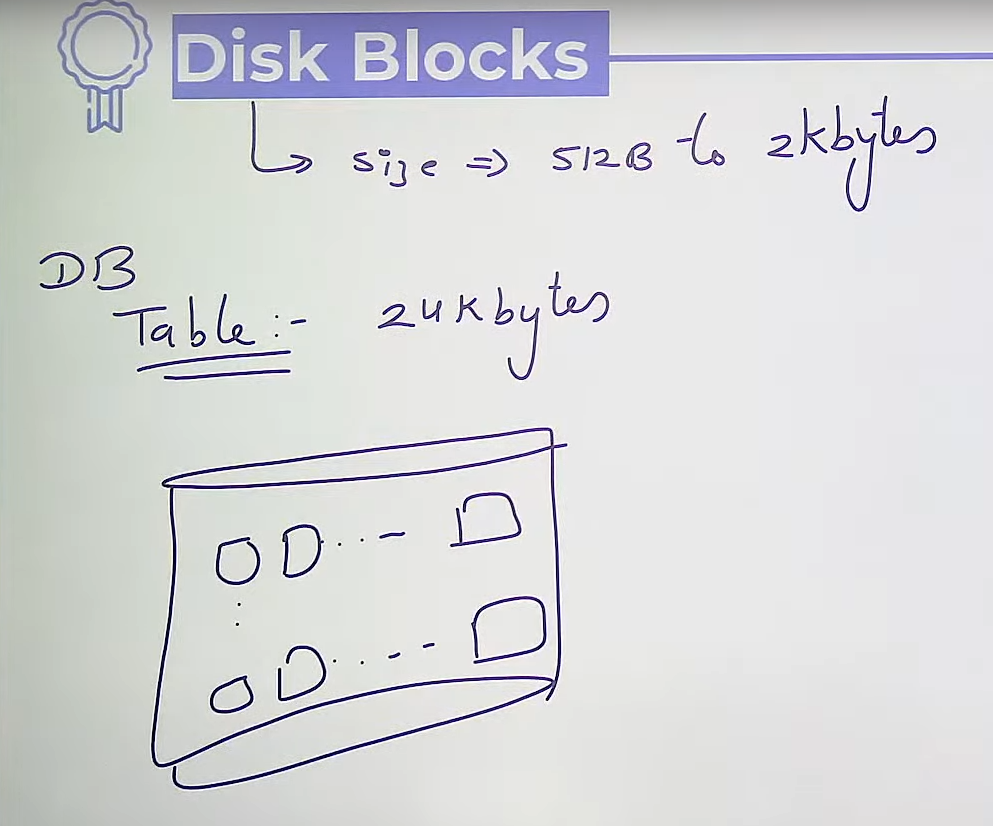 Disk Blocks
size => 512B to 2kbytes
DB
Table :- 24kbytes